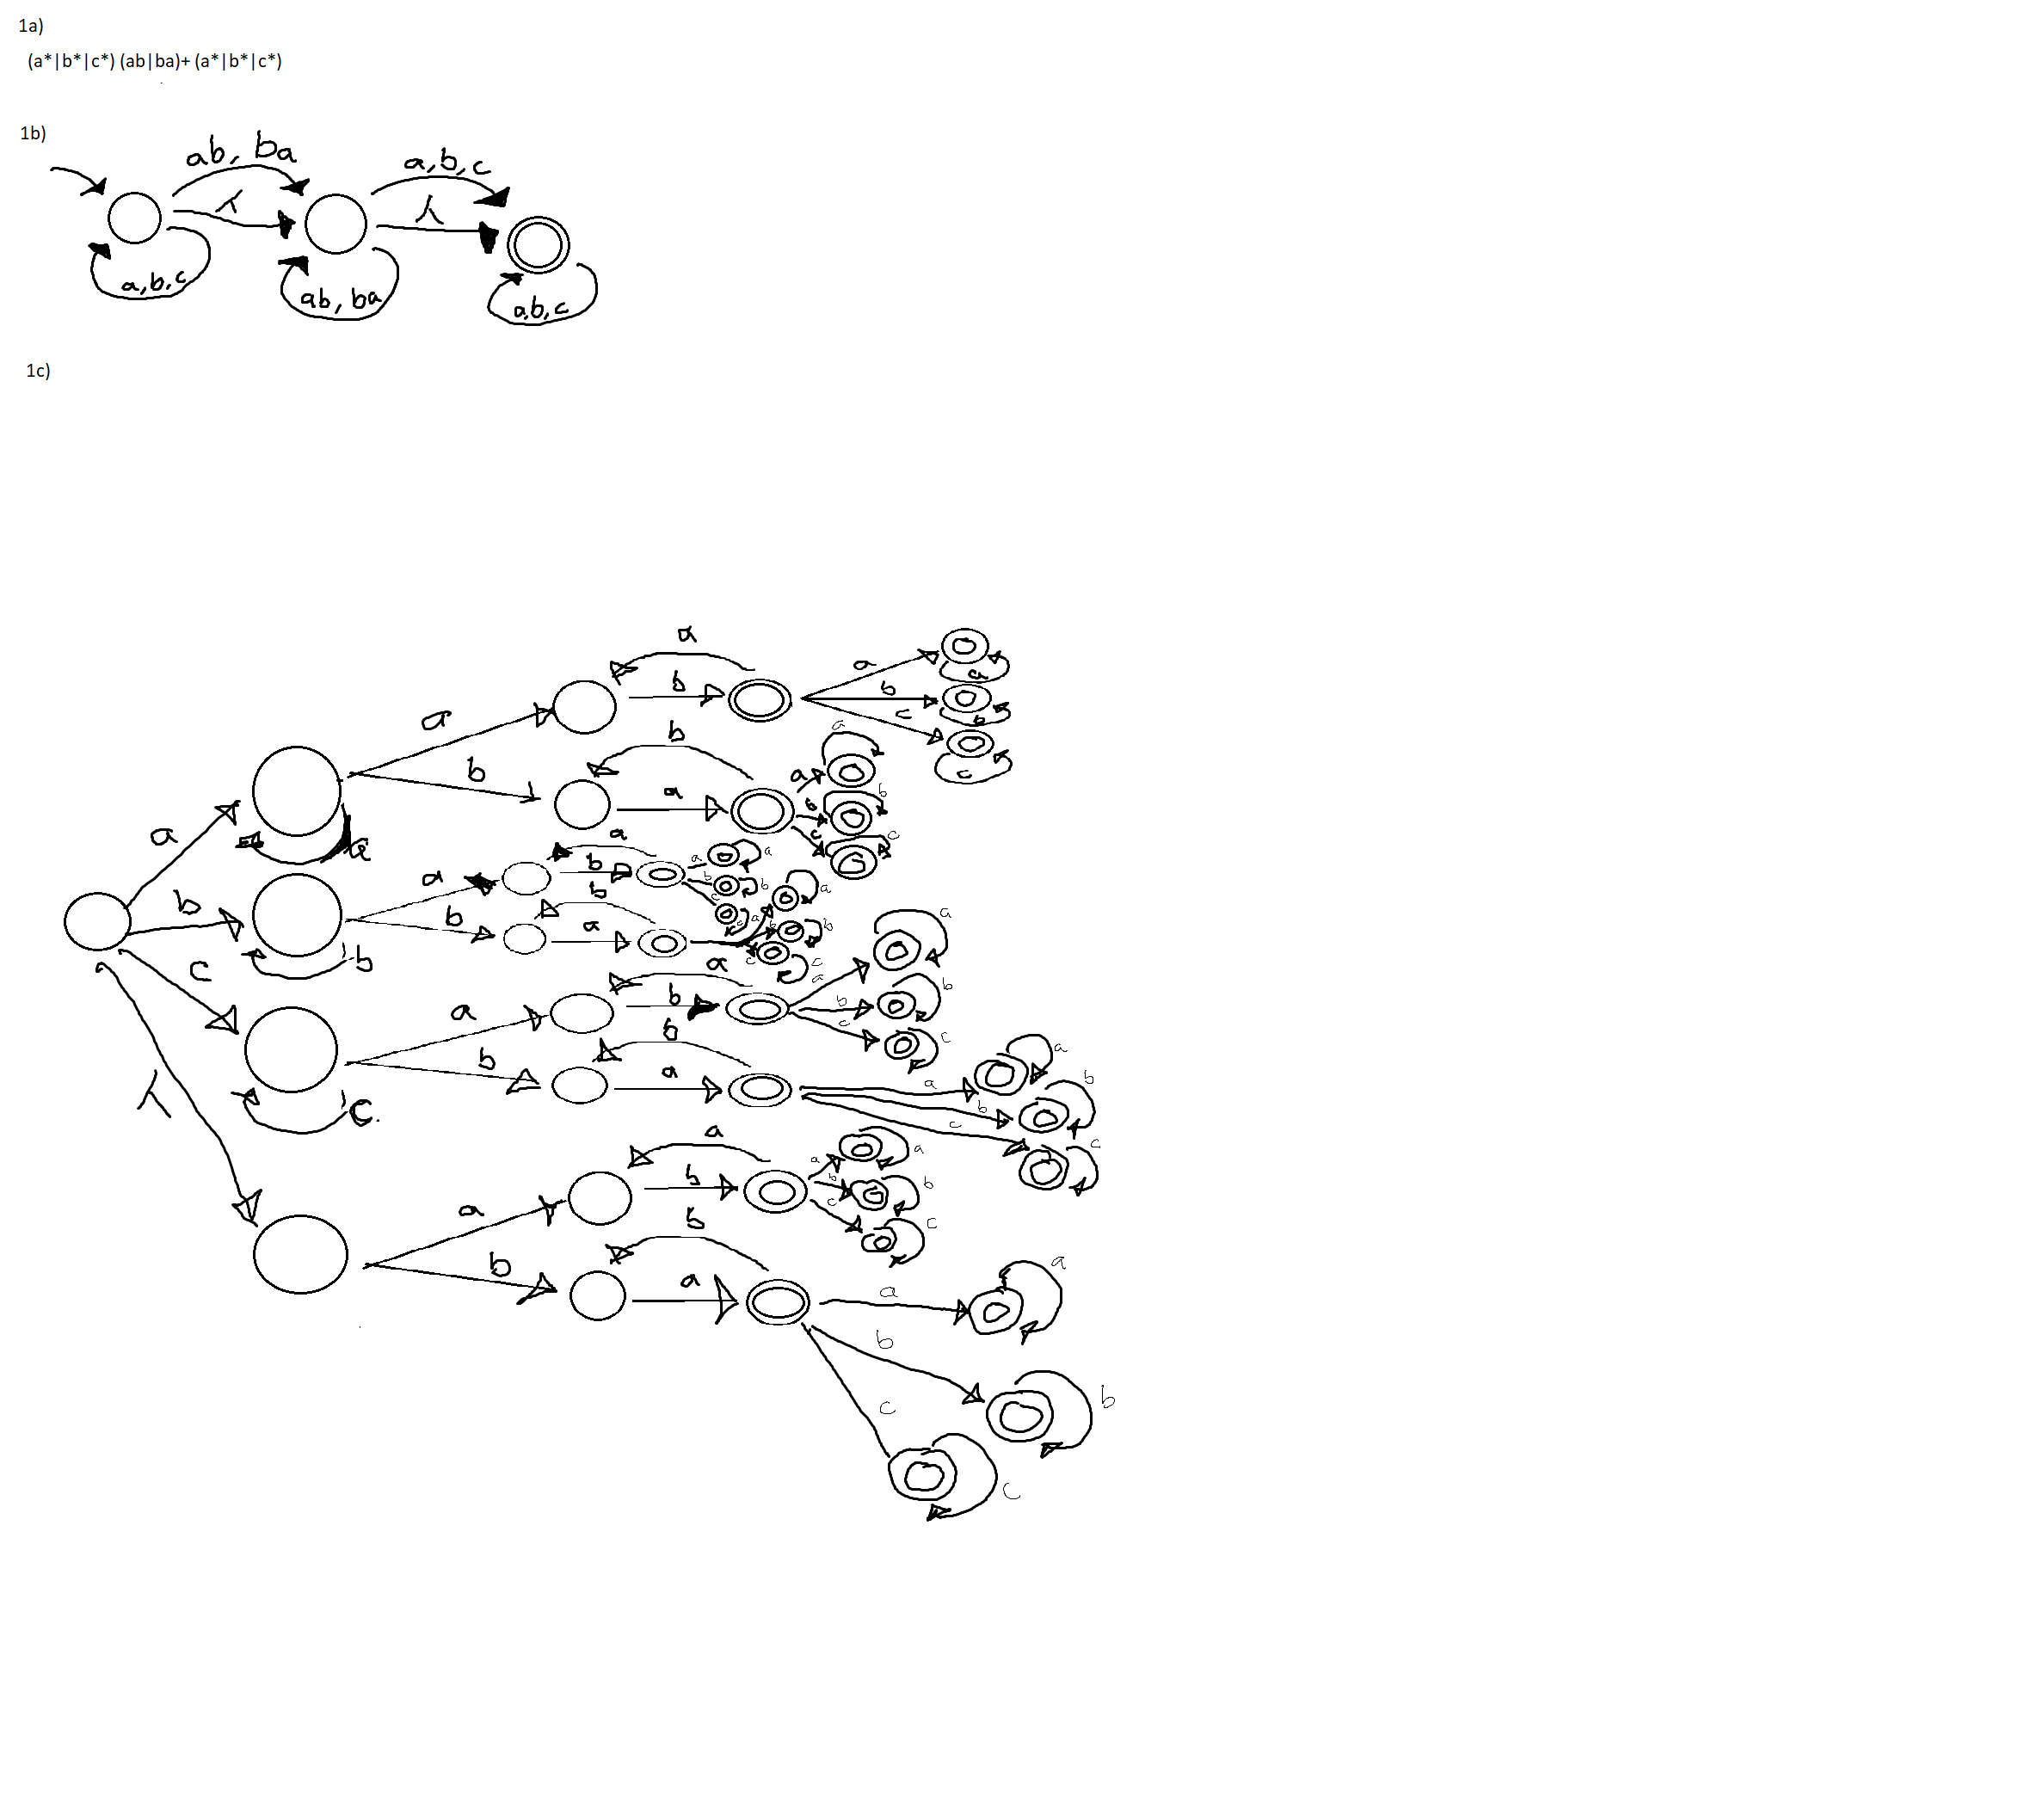 1a)
(a*|b*|c*) (ab|ba)+ (a*|b*|c*)
1b)
ab, ba
a,b,c
λ
λ
a,b,c
ab, ba
a,b,c
1c)
a
a
b
a
b
a
b
c
a
b
c
b
a
a
b
c
a
b
c
a
b
c
λ
a
b
b
a
b
a
b
a
b
c
a
b
c
a
b
a
b
c
a
b
c
c
a
b
a
b
b
a
a
b
c
a
b
c
a
b
c
a
b
c
a
b
a
b
b
a
a
b
c
a
b
c
a
b
c
a
b
c